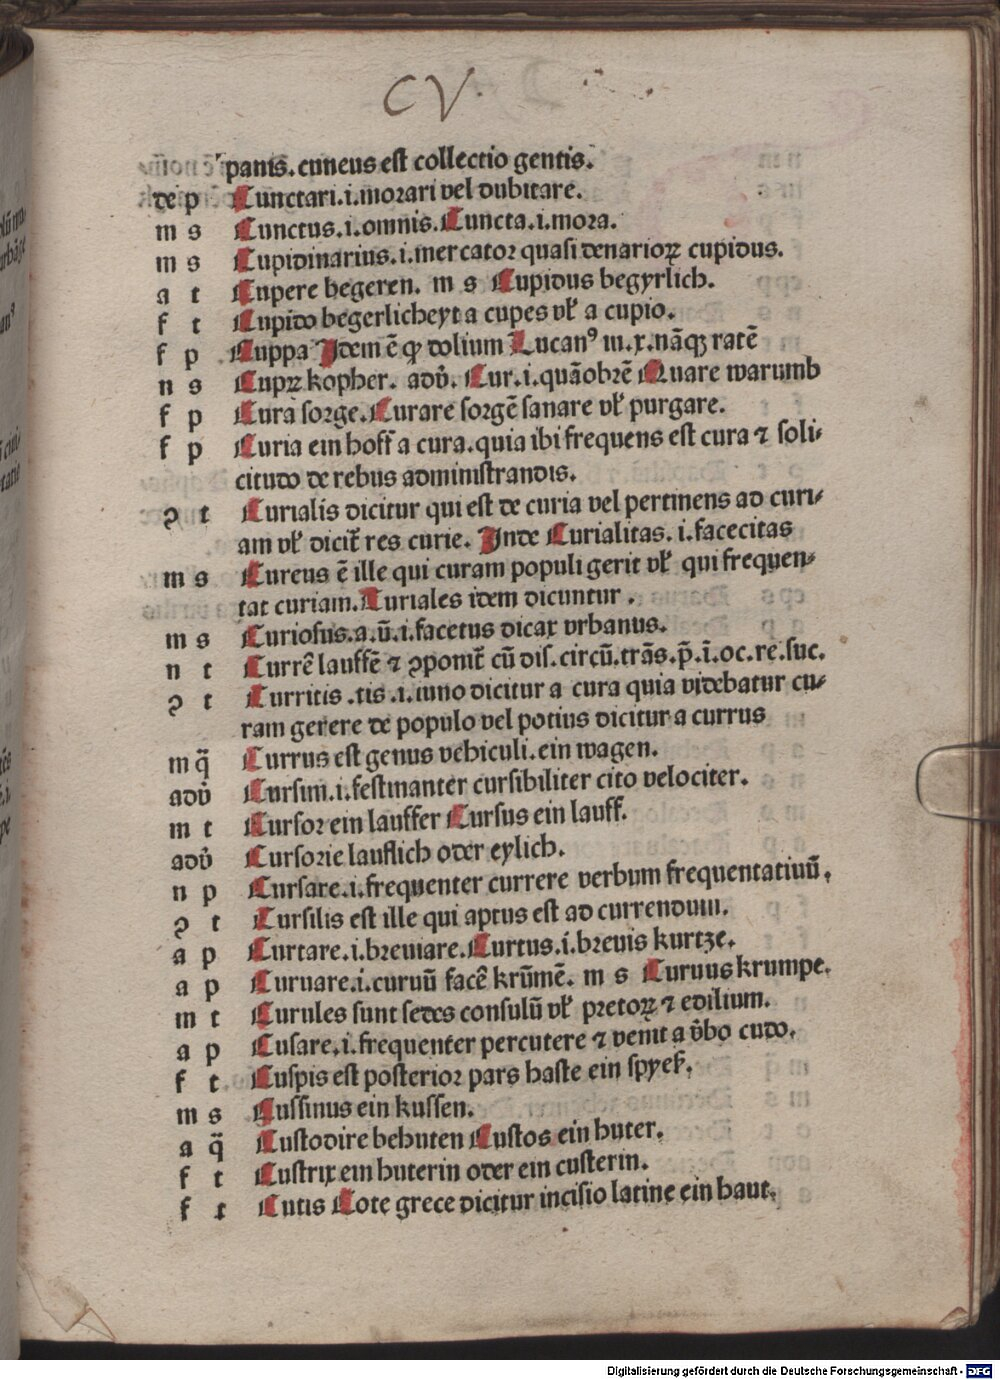 CV.
panis. cuneus est collectio gentis.
de p Cunctari.i.morari vel dubitare.
m s Cunctus.i.omnis. Cuncta.i.mora.
m s Cupidinarius.i.mercator quasi denarioꝝ cupidus.
a t Cupere begeren. m s Cupidus begyrlich.
f t Cupido begerlicheyt a cupes vł a cupio.
f p Cuppa Idem ē qđ dolium Lucanꝰ in.x.nãqꝫ ratē
n s Cupꝝ kopher. adv̉. Cur.i.quãobrē Quare warumb
f p Cura sorge. Curare sorgē sanare vł purgare.
f p Curia ein hoff a cura.quia ibi frequens est cura ⁊ soli⸗
citudo de rebus administrandis.
ꝯ t Curialis dicitur qui est de curia vel pertinens ad curi⸗
am vł dicit̃ res curie. Inde Curialitas. i. facecitas
m s Cureus ē ille qui curam populi gerit vł qui frequen⸗
tat curiam. Curiales idem dicuntur .
m s Curiosus.a.ũ.i.facetus dicax vrbanus.
n t Currē lauffē ⁊ ꝯponit̃ cũ dis.circũ.trãs.p̄.ī.oc.re.suc.
ꝯ t Curritis .tis .i. iuno dicitur a cura quia videbatur cu⸗
ram gerere de populo vel potius dicitur a currus
m q̃ Currus est genus vehiculi. ein wagen.
adv̉ Cursim.i.festinanter cursibiliter cito velociter.
m t Cursor ein lauffer Cursus ein lauff.
adv̉ Cursorie lauflich oder eylich.
n p Cursare.i.frequenter currere verbum frequentatiuũ.
ꝯ t Cursilis est ille qui aptus est ad currendum.
a p Curtare.i.breuiare. Curtus.i.breuis kurtze.
a p Curuare.i.curuũ facē krũmē. m s Curuus krumpe.
m t Curules sunt sedes consulũ vł pretoꝝ ⁊ edilium.
a p Cusare.i.frequenter percutere ⁊ venit a v̉bo cudo.
f t Cuspis est posterior pars haste ein spyeß.
m s Cussinus ein kussen.
a q̃ Custodire behuten Custos ein huter.
f t Custrix ein huterin oder ein custerin.
f t Cutis Cote grece dicitur incisio latine ein haut.
Digitalisierung gefördert durch die Deutsche Forschungsgemeinschaft - DFG